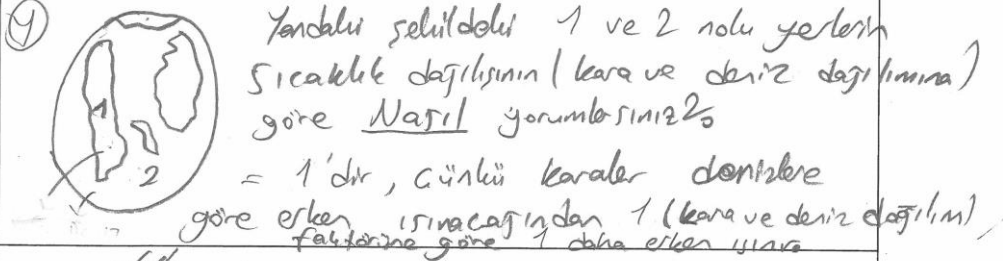 9
Yandaki şekildeki 1 ve 2 nolu yerlerin
sıcaklık dağılışının (kara ve deniz dağılımına)
göre Nasıl yorumlarsınız?
1
2
= 1'dir, çünkü karalar denizlere
göre erken ısınacağından 1 (kara ve deniz dağılım)
faktörüne göre 1 daha erken ısınır